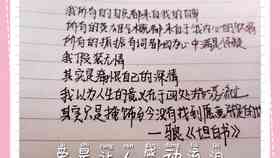 我所有的自负都来自我的自卑
所有的英雄气概都来自于我内心的软弱
所有的振振有词都因为心中满是怀疑
我假装无情
其实是痛恨自己的深情
我以为人生的意义在于四处游荡流亡
其实只是掩饰至今没有找到愿意驻足的地方
—驳《坦白书》